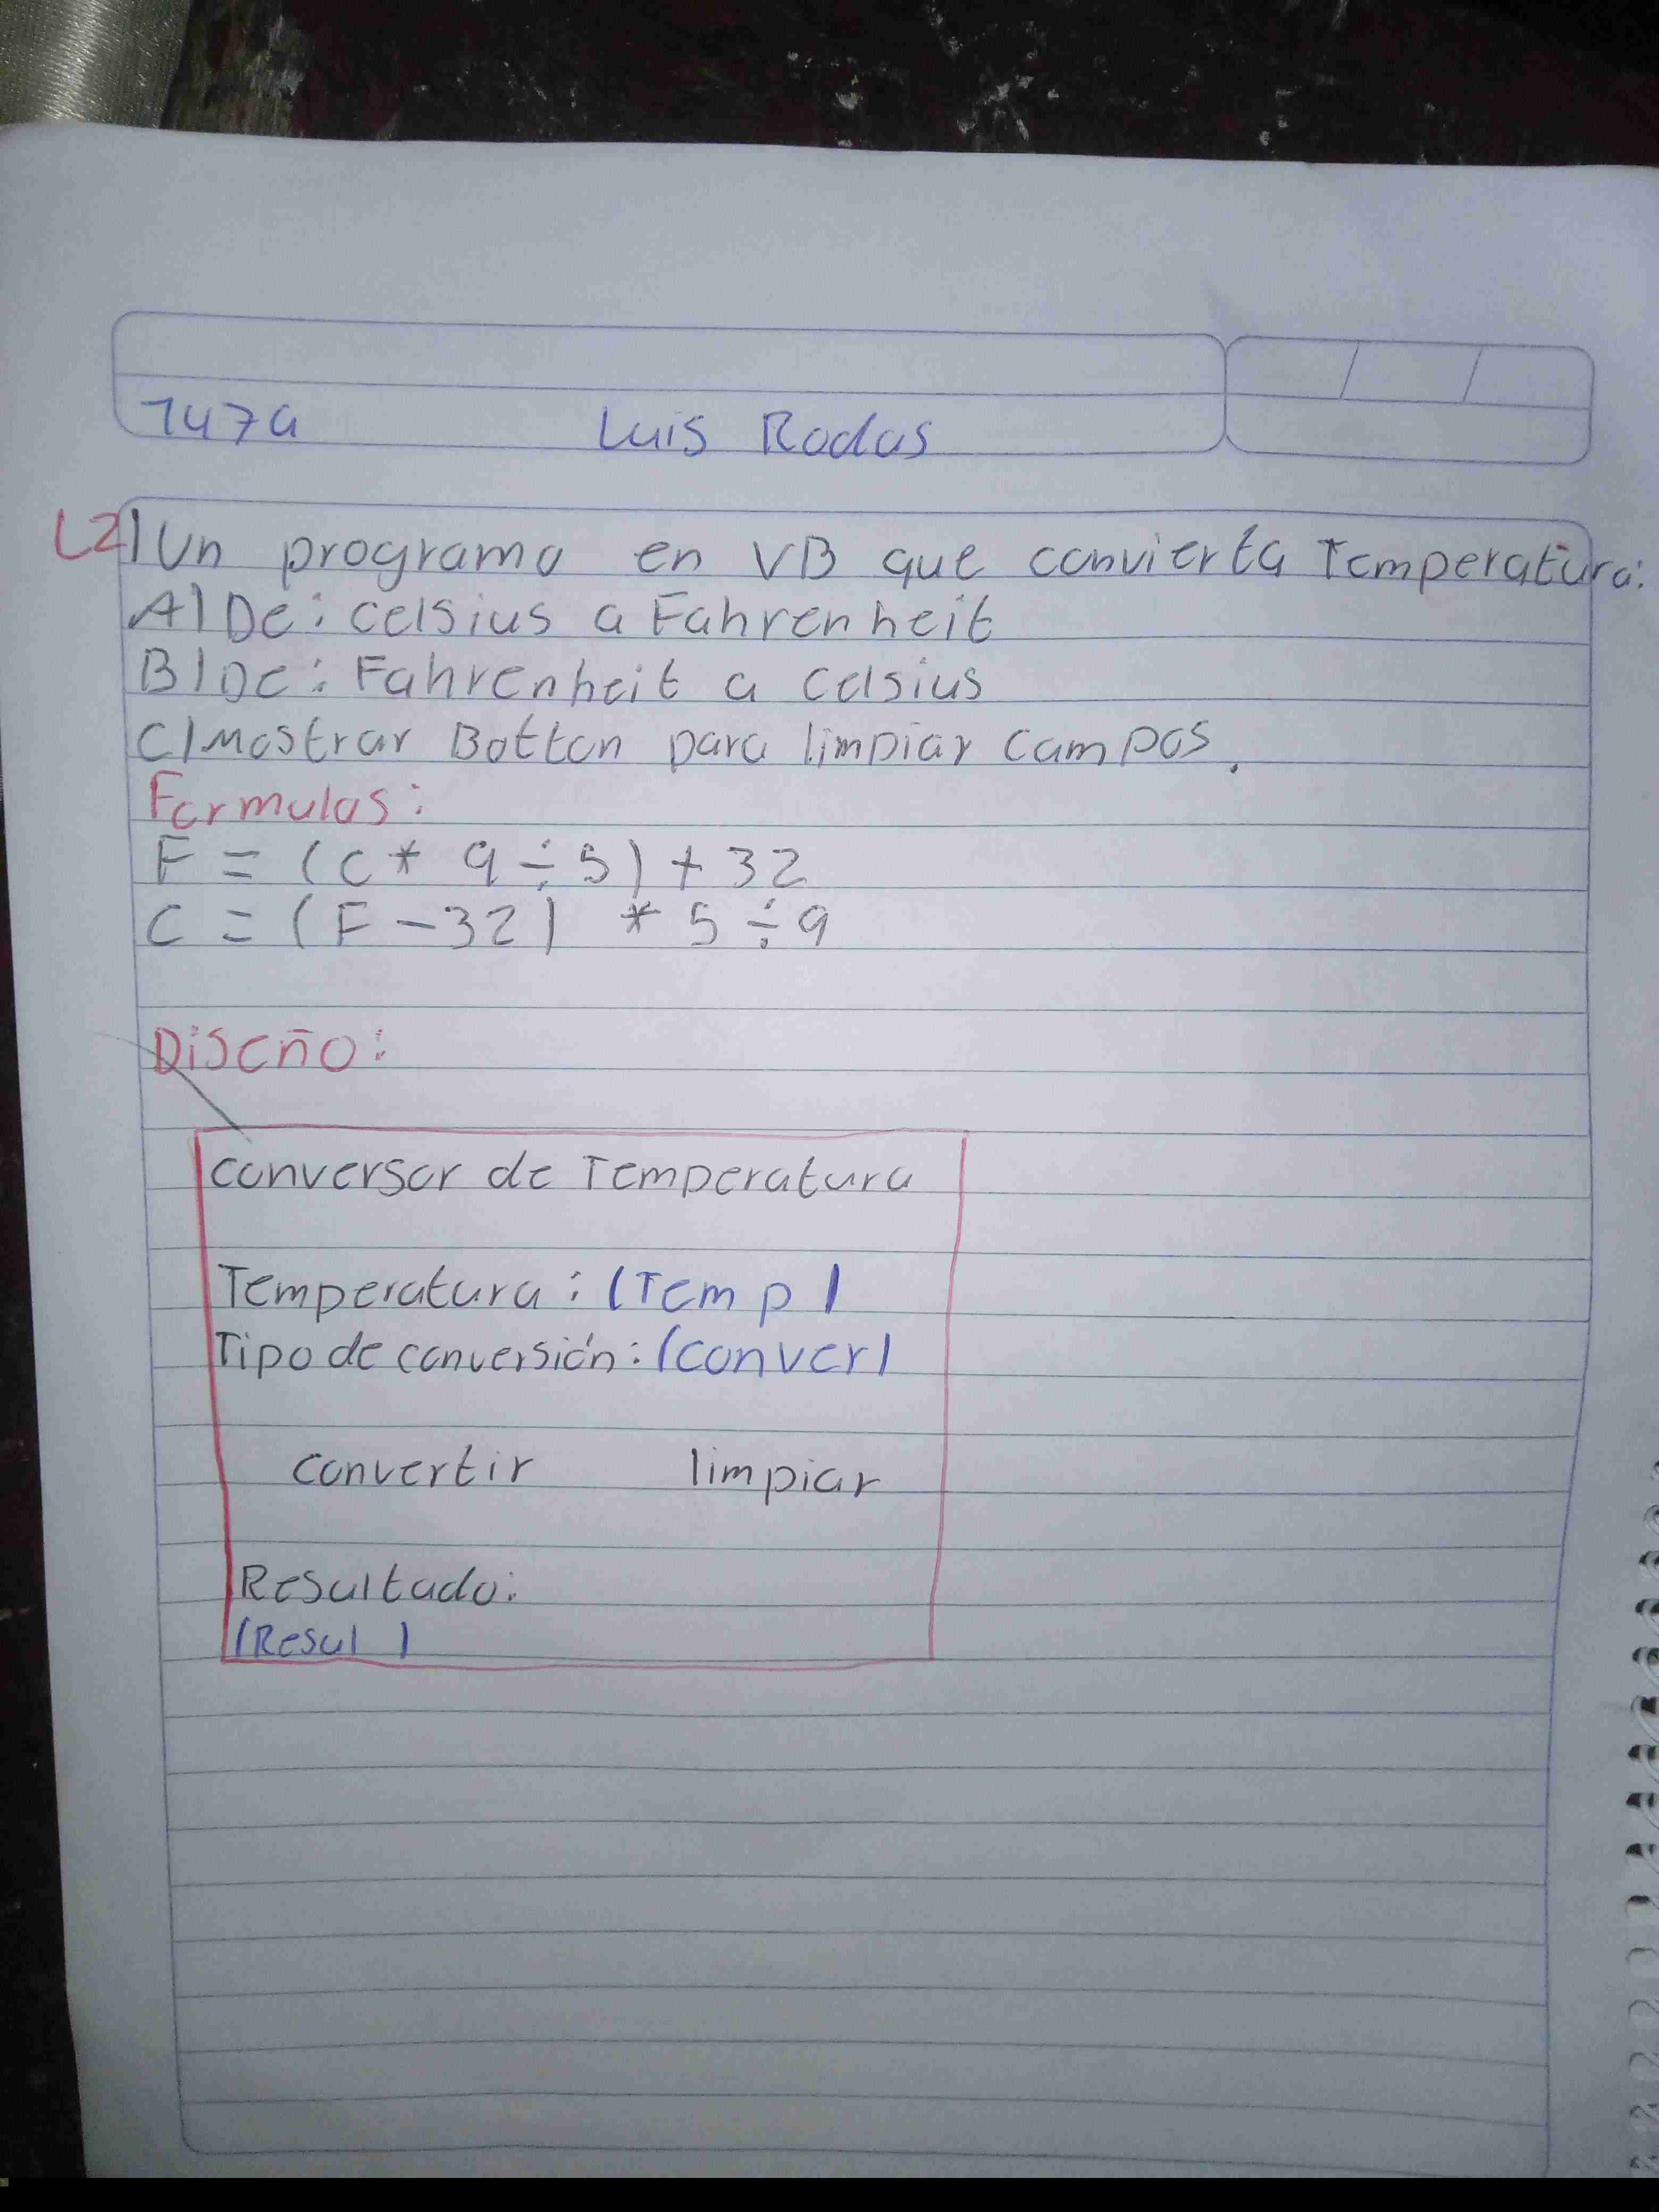 7479 Luis Rodas
L2) Un programa en VB que convierta Temperatura:
A) De: celsius a Fahrenheit
B) De: Fahrenheit a celsius
C) Mostrar Botton para limpiar campos.
Formulas:
F = (C * 9 ÷ 5) + 32
C = (F - 32) * 5 ÷ 9
Diseño:
conversor de Temperatura
Temperatura: (Temp)
Tipo de conversión: (conver)
convertir limpiar
Resultado:
(Resul)